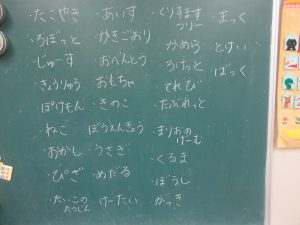 ・たこやき
・ろぼっと
・じゅーす
・きょうりゅう
・ぽけもん
・ねこ
・おかし
・ぴざ
・たいこの
たつじん
・あいす
・かきごおり
・おべんとう
・おもちゃ
・きのこ
ぼうえんきょう
・うさぎ
・めだる
・けーたい
・くりすます
つりー
・かめら
・ろけっと
・てれび
・たぶれっと
・まりおの
げーむ
・くるま
・ぼうし
・がっき
・まっく
・とけい
・ばっく